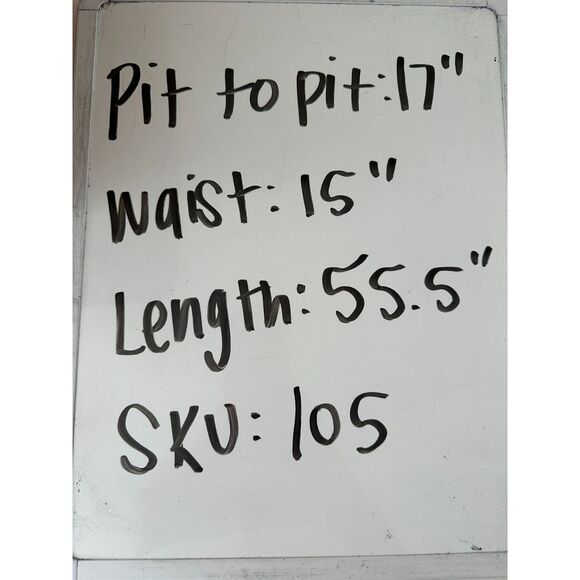 Pit to pit: 17"
Waist: 15"
Length: 55.5"
SKU: 105